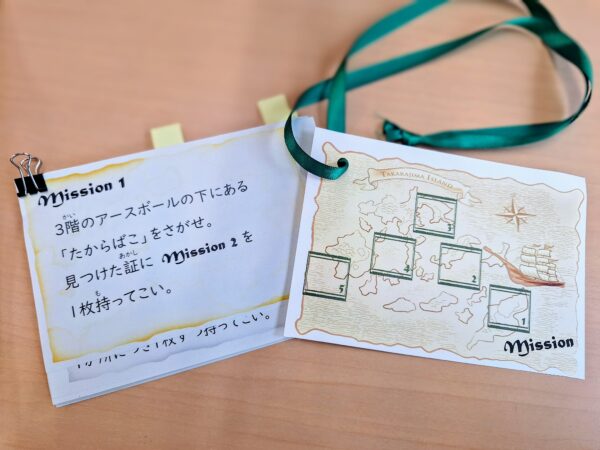 Mission 1
3階のアースボールの下にある
「たからばこ」をさがせ。
見つけた証に Mission 2 を
1枚持ってこい。
かい
あかし
も
TAKARAJIMA ISLAND
3
4
2
5
1
Mission